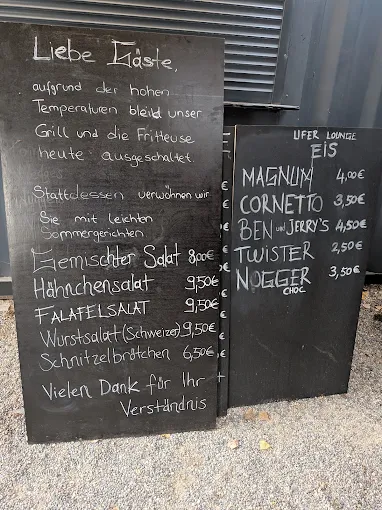 Liebe Gäste,
aufgrund der hohen
Temperaturen bleibt unser
Grill und die Fritteuse
heute ausgeschaltet.
Stattdessen verwöhnen wir
Sie mit leichten
Sommergerichten
Gemischter Salat 8,00€
Hähnchensalat 9,50€
FALAFELSALAT 9,50€
Wurstsalat (Schweizer) 9,50€
Schnitzelbrötchen 6,50€
Vielen Dank für Ihr
Verständnis
UFER LOUNGE
EIS
MAGNUM 4,00€
CORNETTO 3,50€
BEN UND JERRY'S 4,50€
TWISTER 2,50€
NOGGER 3,50€
CHOC